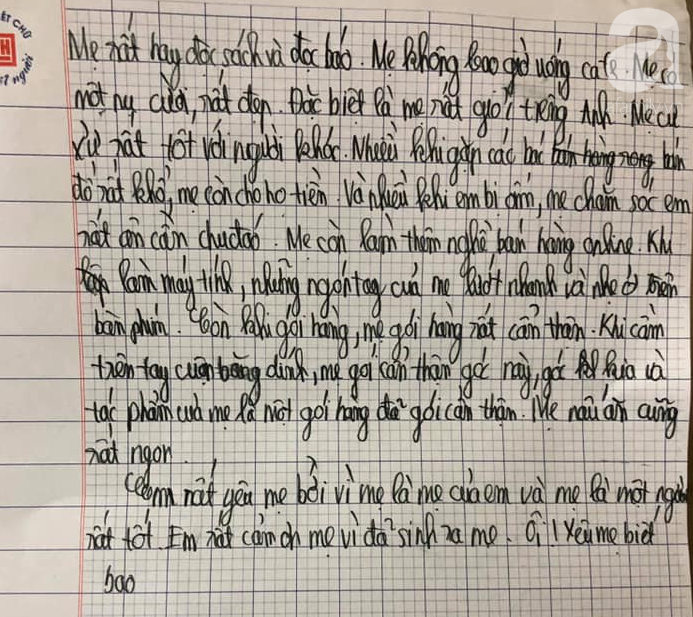 ẾT CHỮ
H
ết người
a
Mẹ rất hay đọc sách và đọc báo. Mẹ không bao giờ uống cafe. Mẹ có
một nụ cười, rất đẹp. Đặc biệt là mẹ rất giỏi tiếng Anh. Mẹ cư
xử rất tốt với người khác. Nhiều khi gặp các bác bán hàng rong bán
đồ rất khổ, mẹ còn cho họ tiền. Và nhiều khi em bị ốm, mẹ chăm sóc em
rất ân cần chu đáo. Mẹ còn làm thêm nghề bán hàng online. Khi
làm máy tính, những ngón tay của mẹ lướt nhanh và nhẹ ở trên
bàn phím. Còn khi gói hàng, mẹ gói hàng rất cẩn thận. Khi cầm
trên tay cuộn băng dính, mẹ gói cẩn thận góc này, góc kia và
tác phẩm của mẹ là một gói hàng đã gói cẩn thận. Mẹ nấu ăn cũng
rất ngon.
Em rất yêu mẹ bởi vì mẹ là mẹ của em và mẹ là một người
rất tốt. Em rất cảm ơn mẹ vì đã sinh ra mẹ. Ôi! Yêu mẹ biết
bao